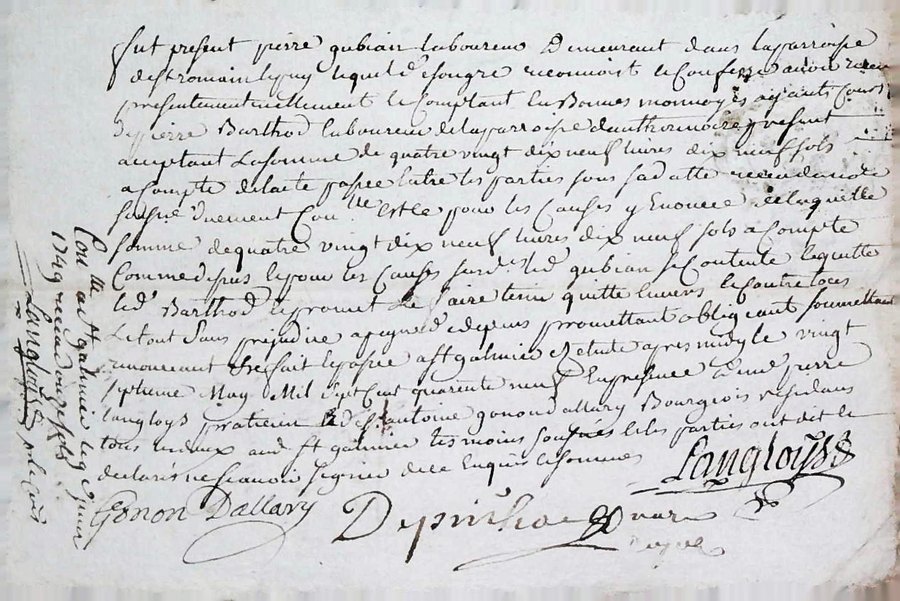 fut present pierre gubian laboureur Demeurant dans laparroisse
destromain lepuy lequel de songre reconnoist et Confesse avoir receu
presentement reellement et Comptant En Bonnes monnoyes ayant Cours
De pierre Barthod laboureur delaparroisse present
acceptant Lasomme de quatre vingt dix neuf livres dix neuf sols
a Compte delacte passée Entre les parties sous sa datte receu dunotre
soussigné duement Con.lle Est ce pour les Causes y Enoncée delaquelle
somme dequatre vingt dix neuf livres dix neuf sols a Compte
Comme depuis le pour les Causes led. gubian se Contente le quitte
led. Barthod le promet le faire tenir quitte Envers le Contre tous
Le tout Sans prejudice promettant obligeant soumettant
renonceant Est fait le passé a St galmier Estude apres midy le vingt
septieme May Mil Sept Cent quarente neuf En presence pierre
langloys praticien & de Sr antoine gonon dallary Bourgeois residans
tous deux aud. St galmier les moins soussignés les parties ont dit le
declaré ne scavoir signer de ce Enquis lesommés
Langloys
Gonon Dallary
nore
royal
Con.lle a St galmier le 9 juin
1749 receu douze sols
Langloys